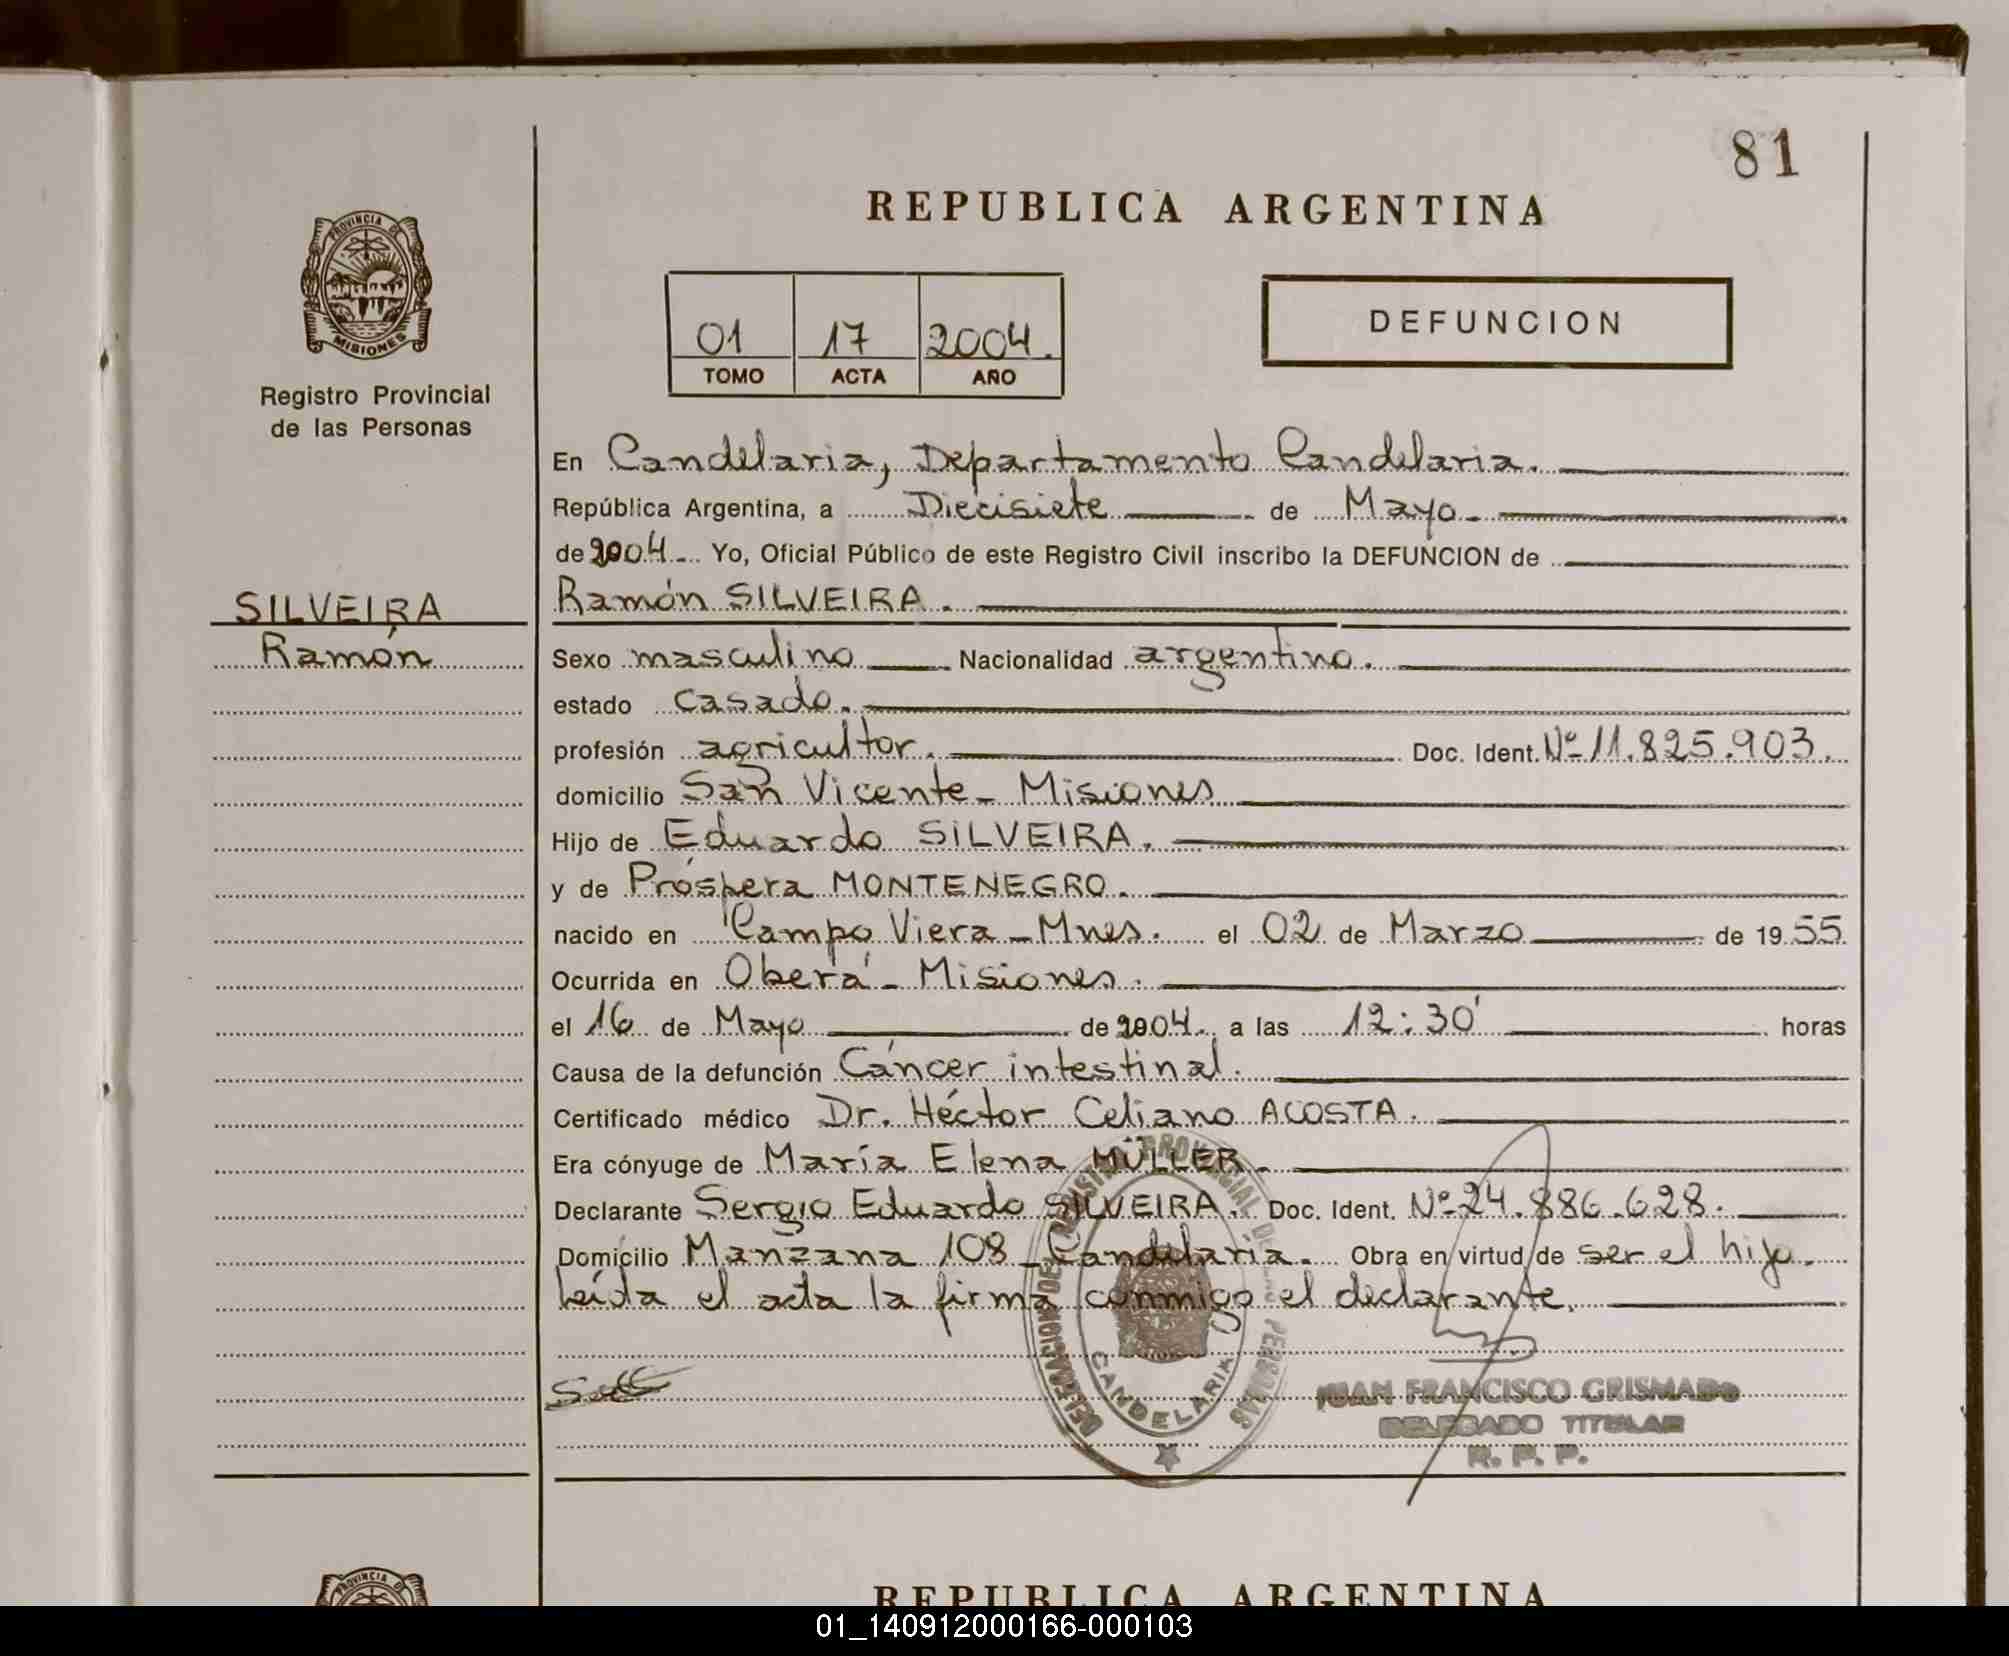 81
REPUBLICA ARGENTINA
PROVINCIA DE
MISIONES
Registro Provincial
de las Personas
01 17 2004.
TOMO ACTA AÑO
DEFUNCION
En Candelaria, Departamento Candelaria.
República Argentina, a Diecisiete de Mayo
de 2004 Yo, Oficial Público de este Registro Civil inscribo la DEFUNCION de
SILVEIRA
Ramón
Ramón SILVEIRA.
Sexo masculino Nacionalidad argentino.
estado casado.
profesión agricultor. Doc. Ident. Nº 11.825.903.
domicilio San Vicente - Misiones
Hijo de Eduardo SILVEIRA.
y de Próspera MONTENEGRO.
nacido en Campo Viera - Mnes. el 02 de Marzo de 1955
Ocurrida en Oberá - Misiones.
el 16 de Mayo de 2004. a las 12:30' horas
Causa de la defunción Cáncer intestinal.
Certificado médico Dr. Héctor Celiano ACOSTA.
Era cónyuge de María Elena MÜLLER.
Declarante Sergio Eduardo SILVEIRA. Doc. Ident. Nº 24.886.628.
Domicilio Manzana 108 - Candelaria. Obra en virtud de ser el hijo.
Leída el acta la firma conmigo el declarante.
DELEGACION DEL REGISTRO PROVINCIAL DE LAS PERSONAS
CANDELARIA
JUAN FRANCISCO GRISMADO
DELEGADO TITULAR
R. P. P.
PROVINCIA DE
REPUBLICA ARGENTINA
01_140912000166-000103